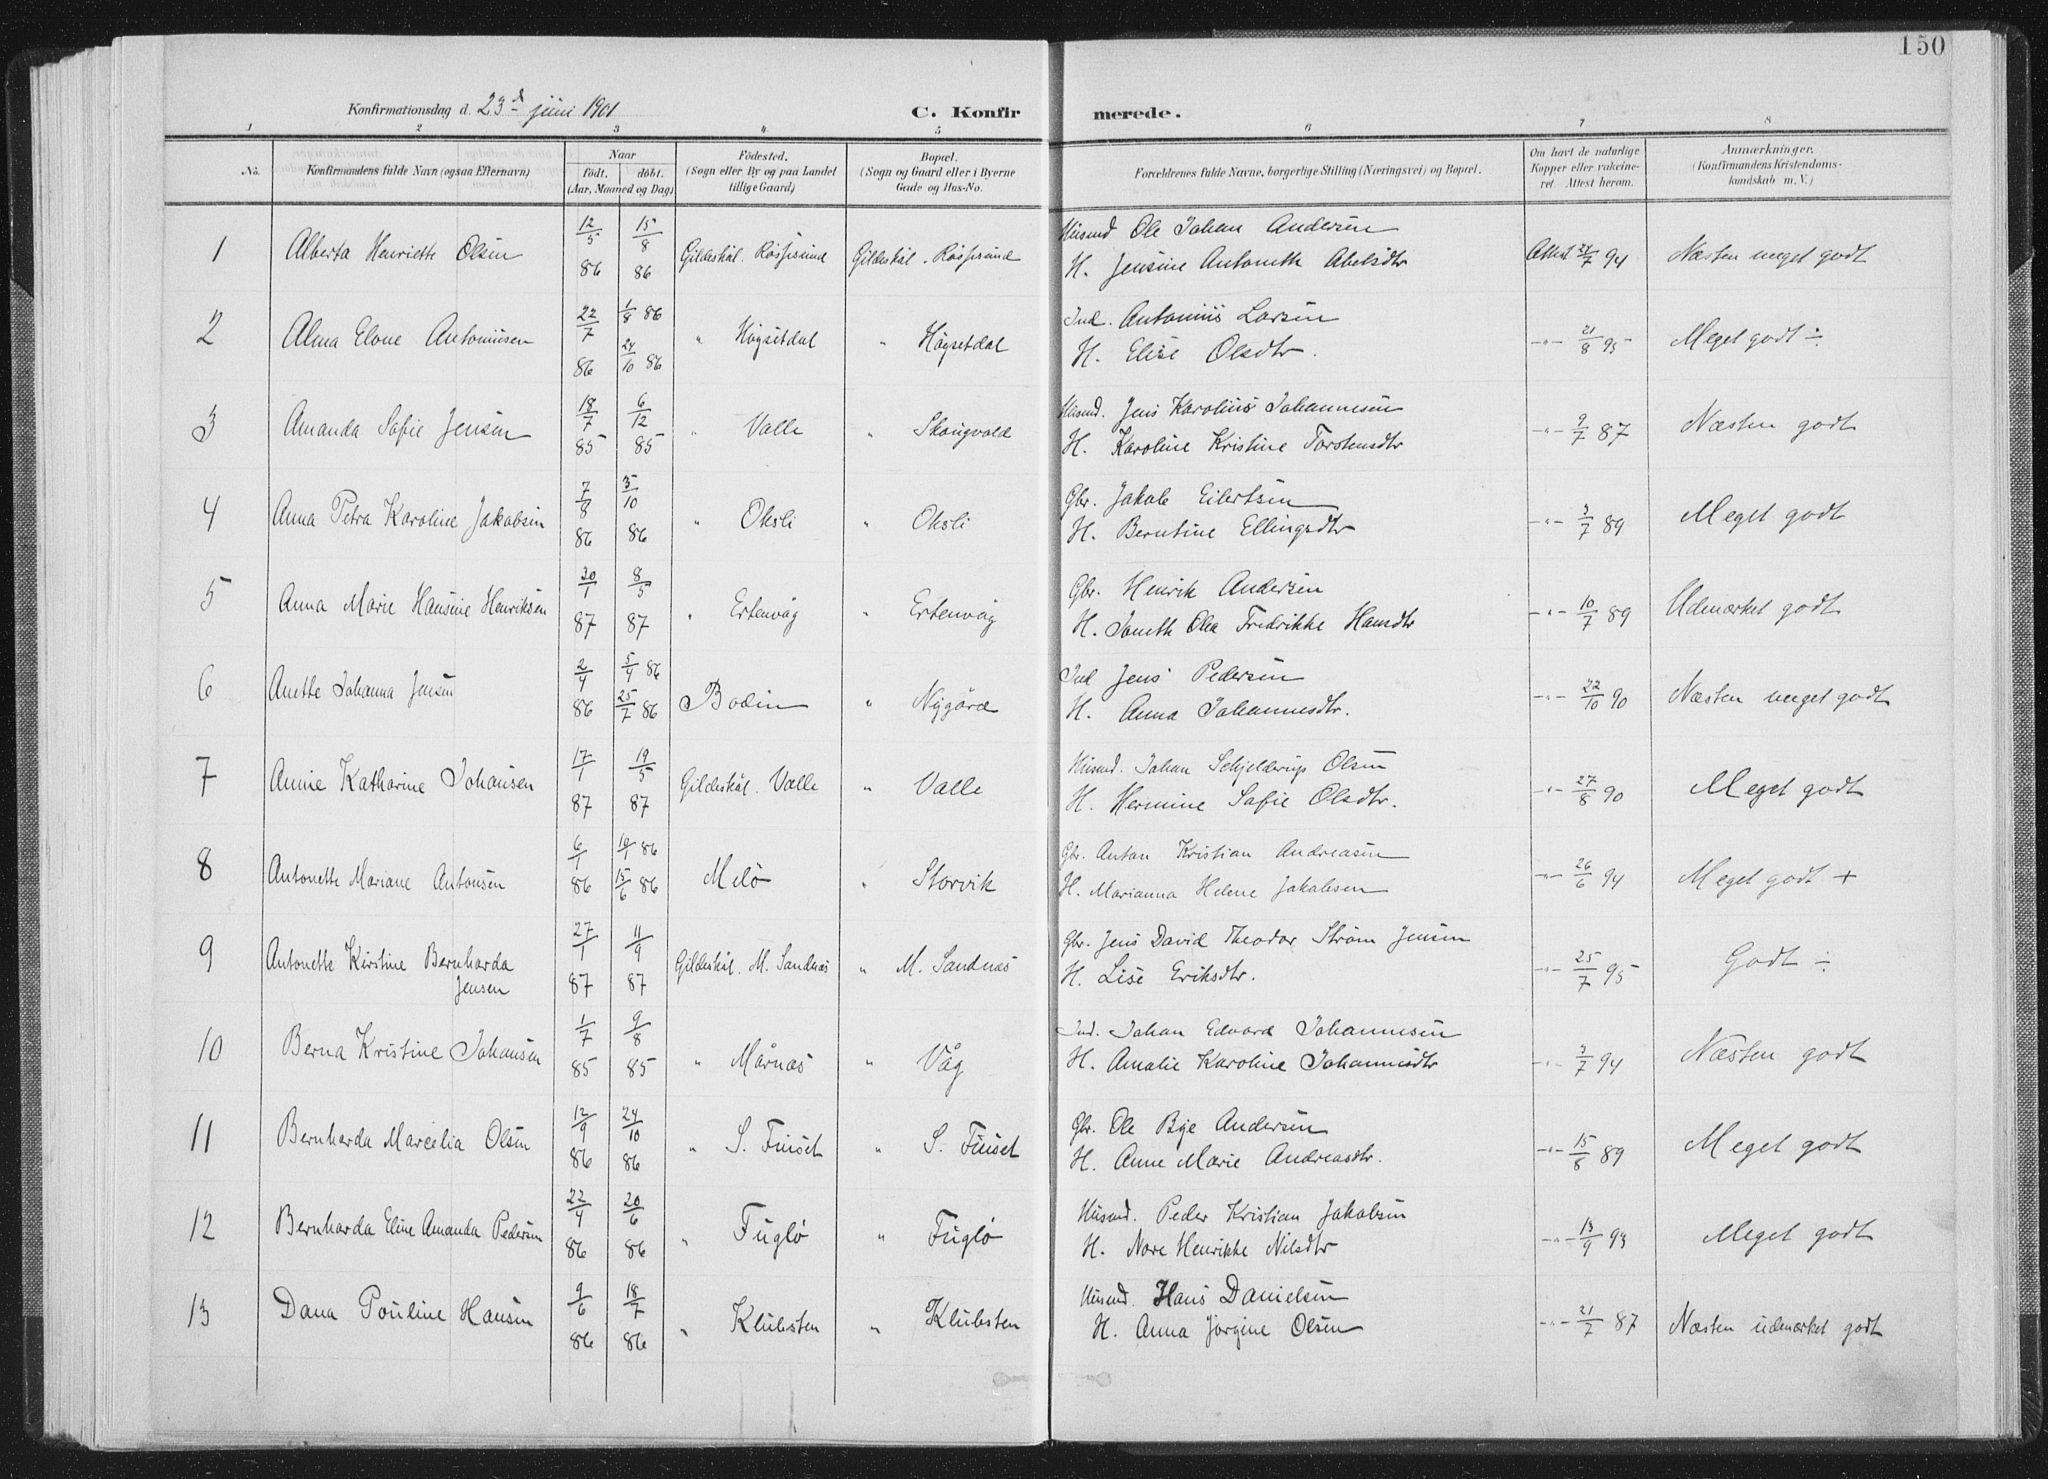 150
Konfirmationsdag d. 23d juni 1901 C. Konfirmerede.
1 2 3 4 5 6 7 8
No. Konfirmandens fulde Navn (ogsaa Efternavn) Naar født. døbt. (Aar, Maaned og Dag) Fødested. (Sogn eller By og paa Landet tillige Gaard) Bopæl. (Sogn og Gaard eller i Byerne Gade og Hus-No. Forældrenes fulde Navne, borgerlige Stilling (Næringsvei) og Bopæl. Om havt de naturlige Kopper eller vakcineret. Attest herom. Anmærkninger. (Konfirmandens Kristendomskundskab m. V.)
1 Alberta Henriette Olsen 12/5 86 15/8 86 Gildeskål. Røssesund Gildeskål. Røssesund Husmd Ole Johan Andersen
H. Jensine Antoneth Abelsdtr Attest 24/7 94 Næsten meget godt
2 Alma Elone Antoniusen 22/7 86 1/8 86 24/10 86 " Høgsetdal " Høgsetdal Ind. Antonius Larsen
H. Elise Olsdtr. -"- 21/8 95 Meget godt ÷
3 Amanda Sofie Jensen 18/7 85 6/12 85 " Valle " Skougvold Husmd. Jens Karolius Johannesen
H. Karoline Kristine Torstensdtr -"- 9/7 87 Næsten godt
4 Anna Petra Karoline Jakobsen 7/8 86 3/10 86 " Oksli " Oksli Gbr. Jakob Eilertsen
H. Berntine Ellingsdtr -"- 3/7 89 Meget godt
5 Anna Marie Hansine Henriksen 30/1 87 8/5 87 " Ertenvåg " Ertenvåg Gbr. Henrik Andersen
H. Janeth Olea Fredrikke Hansdtr -"- 10/7 89 Udmærket godt
6 Anette Johanna Jensen 2/4 86 5/4 86 25/7 86 Bodin " Nygård Ind Jens Pedersen
H. Anna Johannesdtr. -"- 22/10 90 Næsten meget godt
7 Annie Katharine Johansen 17/1 87 19/5 87 Gildeskål. Valle " Valle Husmd. Johan Schjelderup Olsen
H. Hermine Sofie Olsdtr. -"- 27/8 90 Meget godt
8 Antonette Mariane Antonsen 6/1 86 10/1 86 15/6 86 Melø " Storvik Gbr. Anton Kristian Andreasen
H. Marianna Helene Jakobsen -"- 26/6 94 Meget godt +
9 Antonette Kirstine Bernharda Jensen 27/1 87 11/9 87 Gildeskål. M. Sandnæs " M. Sandnæs Gbr. Jens David Theodor Strøm Jensen
H. Lise Eriksdtr. -"- 25/7 95 Godt ÷
10 Berna Kristine Johansen 1/7 85 9/8 85 " Mårnæs " Våg Ind. Johan Edvard Johannesen
H. Amalie Karoline Johannesdtr -"- 3/7 94 Næsten godt
11 Bernharda Marcelia Olsen 12/9 86 24/10 86 " S. Finset " S. Finset Gbr. Ole Bye Andersen
H. Anne Marie Andreasdtr. -"- 15/8 89 Meget godt
12 Bernharda Eline Amanda Pedersen 22/4 86 20/6 86 " Fuglø " Fuglø Husmd. Peder Kristian Jakobsen
H. Nore Henrikke Nilsdtr -"- 13/9 93 Meget godt
13 Dana Pouline Hansen 9/6 86 18/7 86 " Klubsten " Klubsten Husmd. Hans Danielsen
H. Anna Jørgine Olsen -"- 21/7 87 Næsten udmærket godt